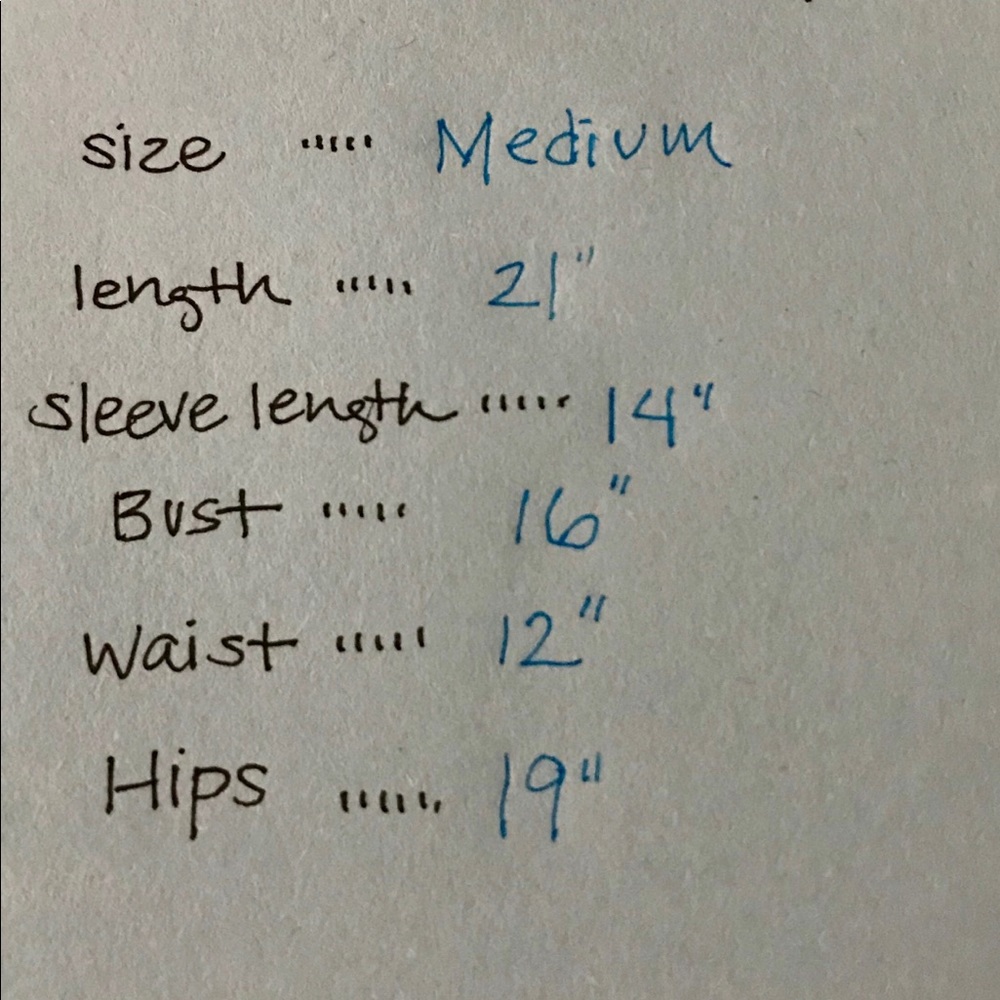 size ..... Medium
length ..... 21"
sleeve length ..... 14"
Bust ..... 16"
Waist ..... 12"
Hips ...... 19"